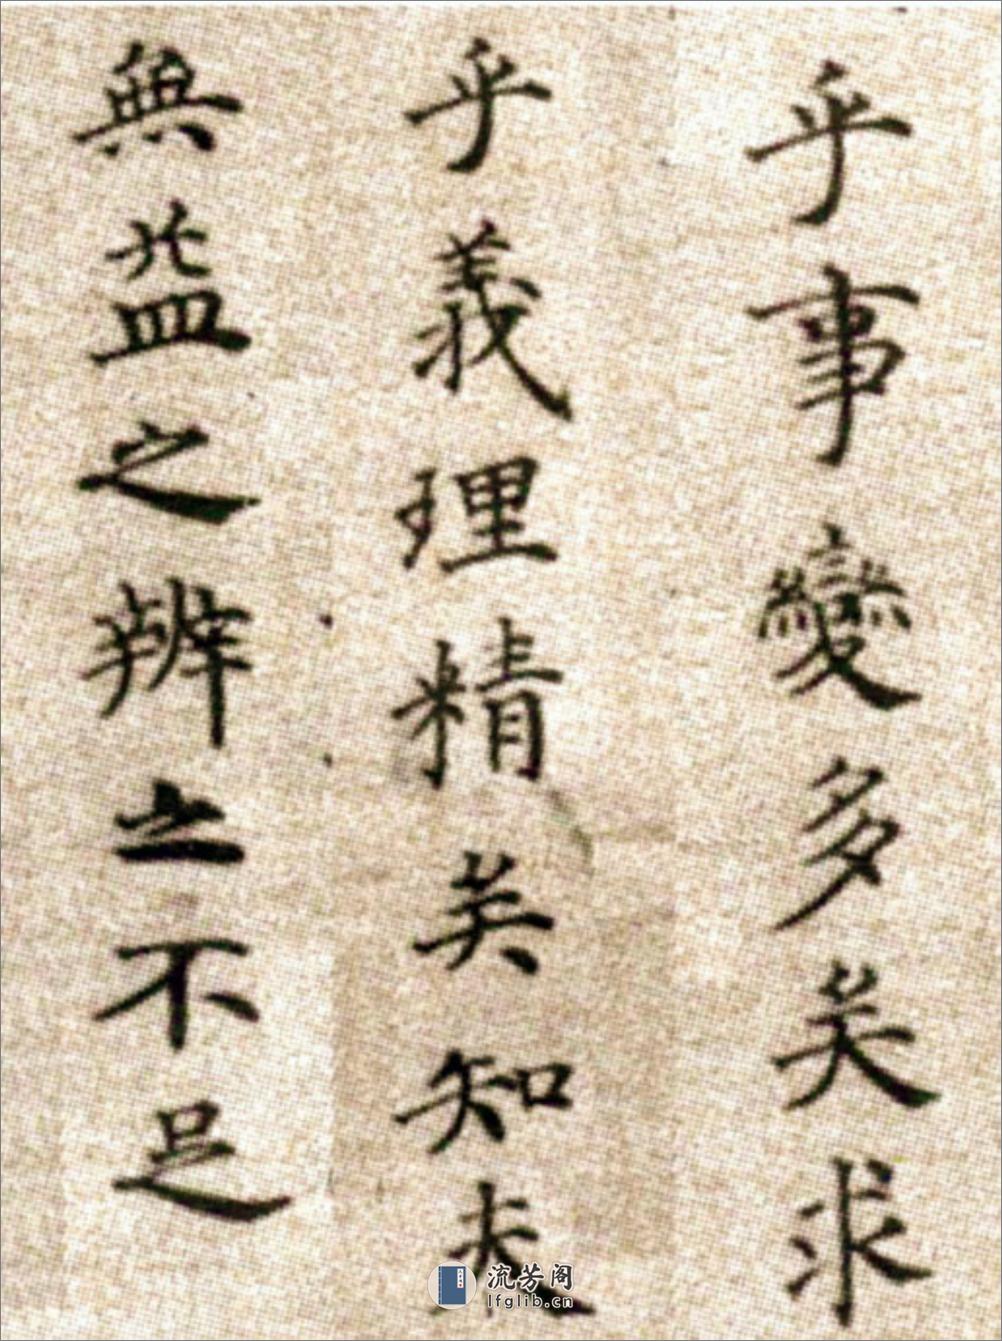 乎事變多矣求
乎義理精矣知夫
與益之辨之不足
流芳阁
lfglib.cn